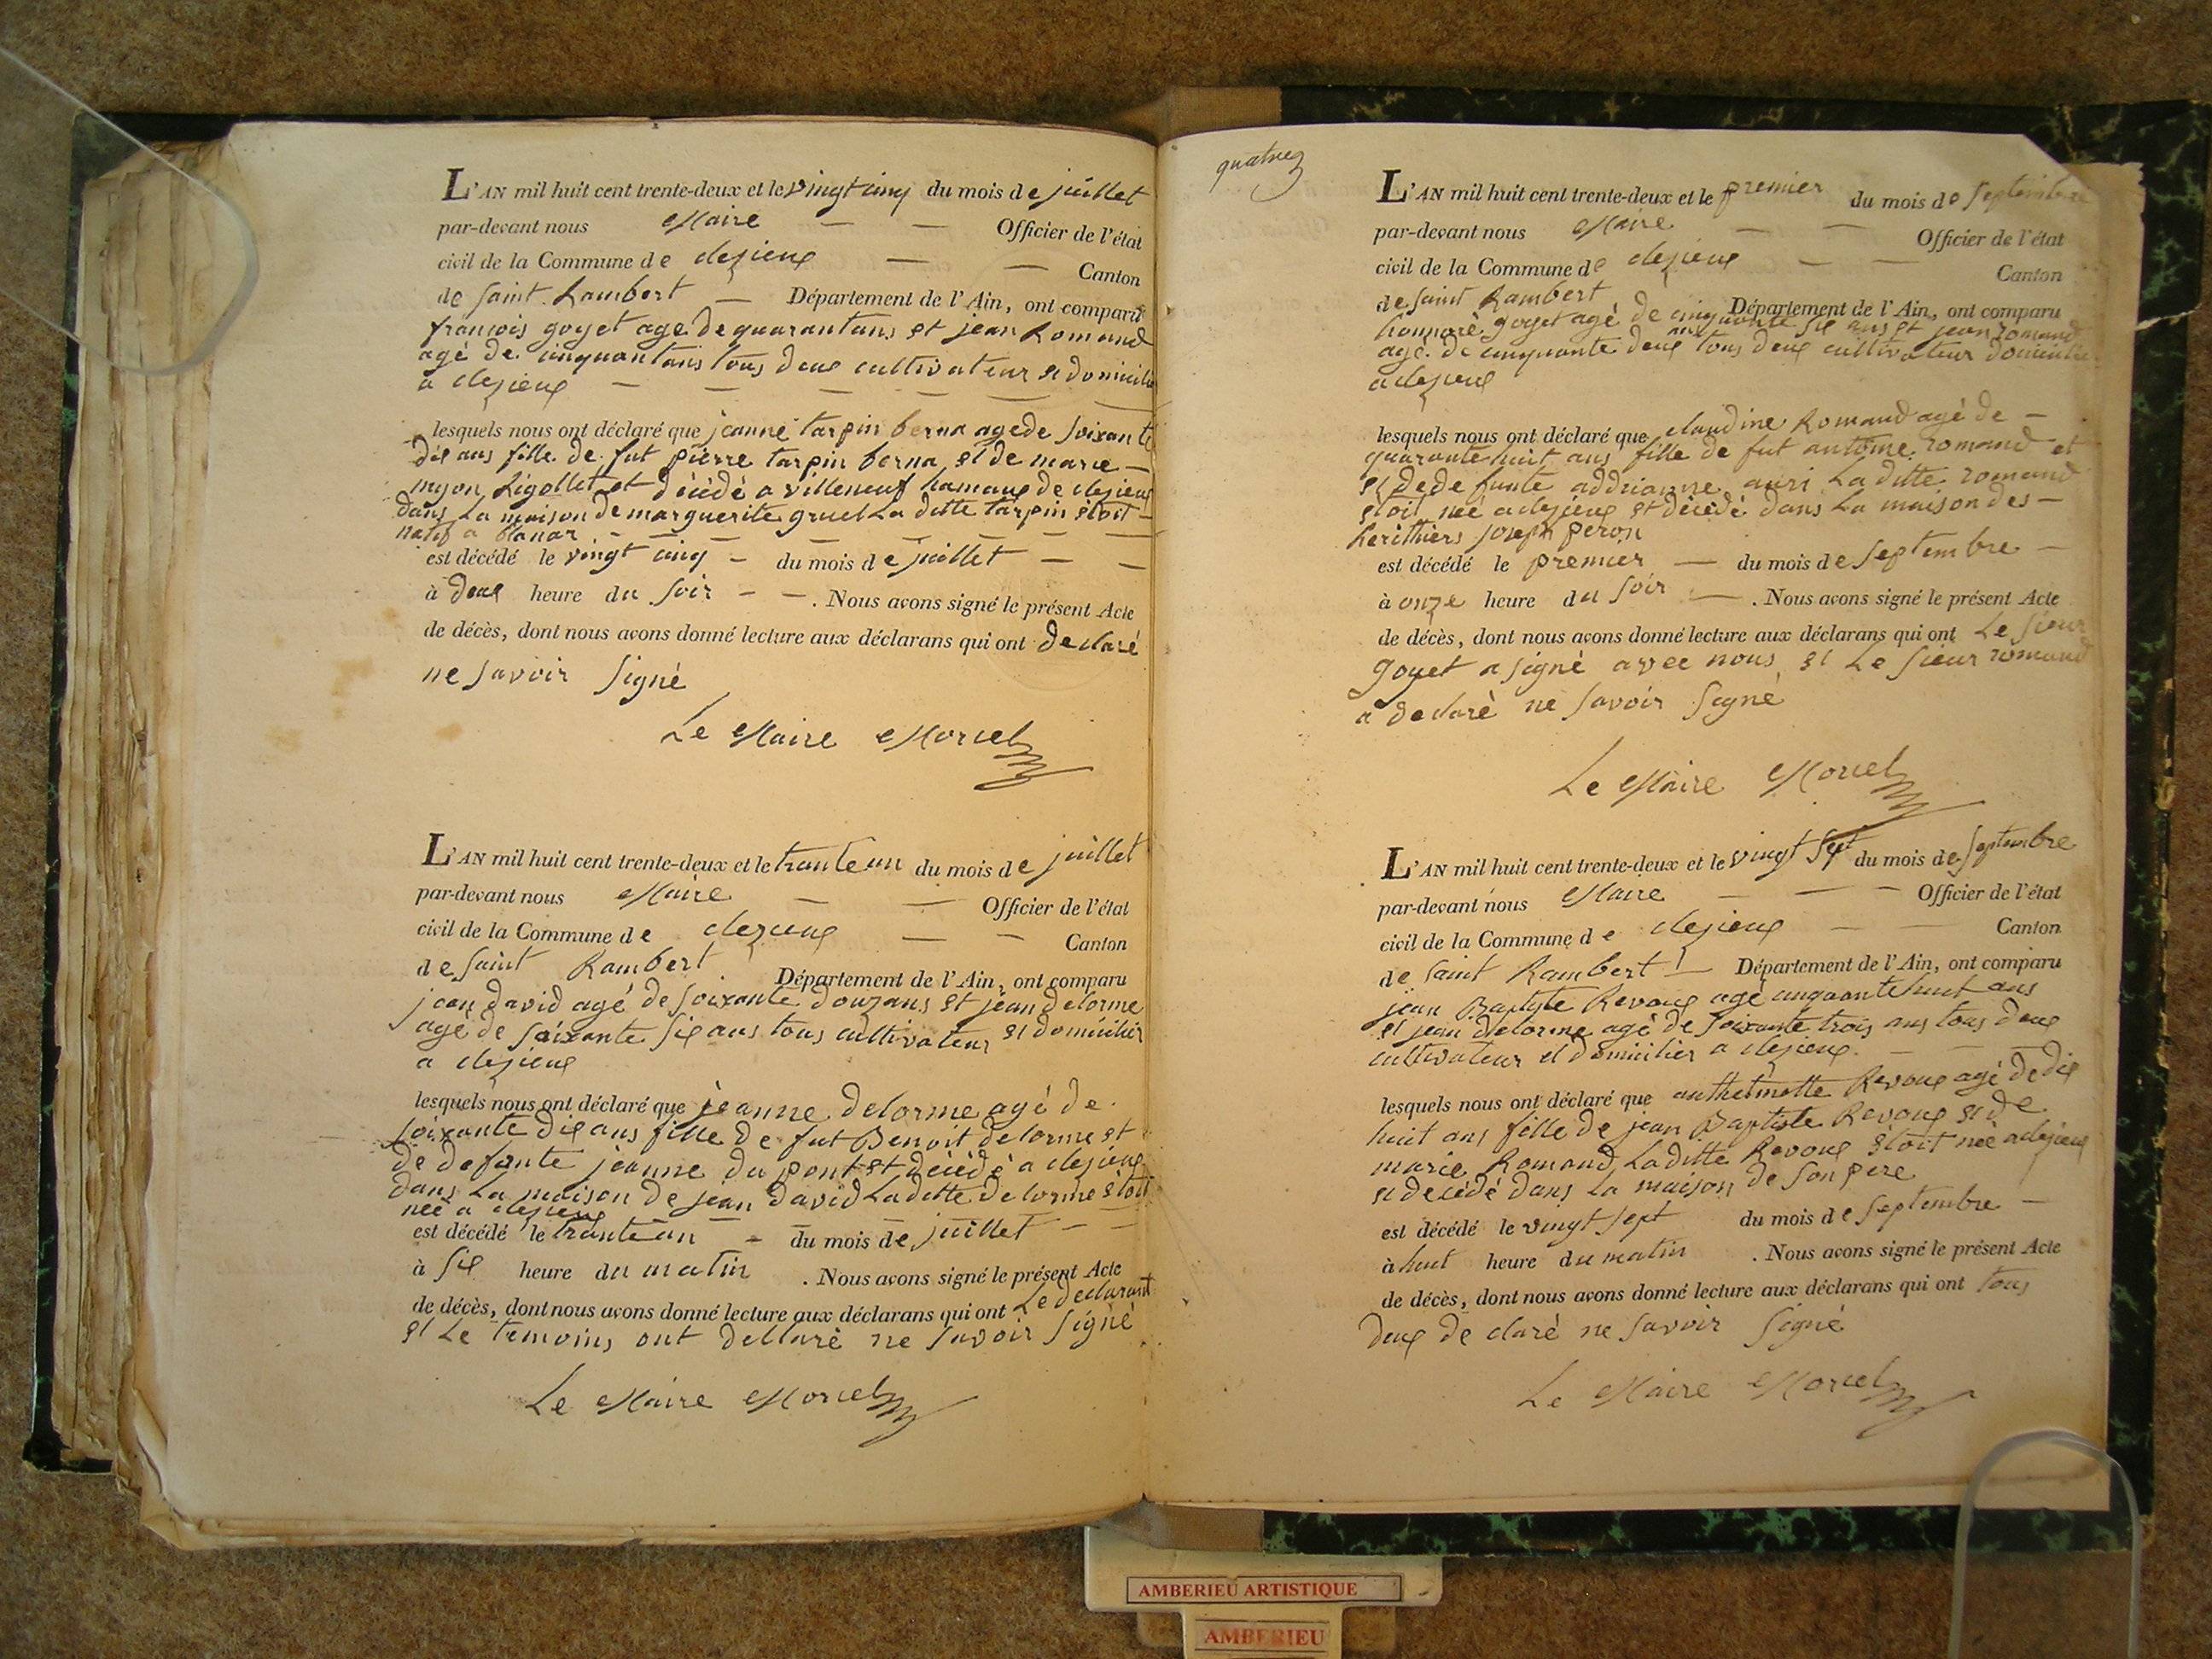 L'AN mil huit cent trente-deux et le vingt cinq du mois de juillet
par-devant nous Maire — — Officier de l'état
civil de la Commune de clezieux — — Canton
de Saint Rambert — Département de l'Ain, ont comparu
françois goyet age de quarantans et jean Romand
agé de cinquantans tous deux cultivateur et domicilié
a clezieux — — — — — —
lesquels nous ont déclaré que jeanne tarpin berna agede Soixante
dix ans fille de fut pierre tarpin berna et de marie —
myon Ligollet et décédé a villeneuf hamaux de clezieux
dans La maison de marguerite gruel La ditte tarpin étoit —
natif a blanaz — — — — — —
est décédé le vingt cinq — du mois de juillet — —
à deux heure du Soir — — . Nous avons signé le présent Acte
de décès, dont nous avons donné lecture aux déclarans qui ont declaré
ne Savoir Signé
Le Maire Morcel
L'AN mil huit cent trente-deux et le trante un du mois de juillet
par-devant nous Maire — — Officier de l'état
civil de la Commune de clezieux — — Canton
de Saint Rambert . Département de l'Ain, ont comparu
jean david agé de Soixante douzans et jean delorme
agé de Soixante Six ans tous cultivateur et domicilier
a clezieux
lesquels nous ont déclaré que jeanne delorme agé de
Soixante dix ans fille de fut Benoit delorme et
de defunte jeanne du pont et décédé a clezieux
dans La maison de jean david La ditte delorme étoit
née a clezieux — — —
est décédé le trante un — du mois de juillet — —
à Six heure du matin . Nous avons signé le présent Acte
de décès, dont nous avons donné lecture aux déclarans qui ont Le declarant
et Le temoins ont declaré ne Savoir Signé
Le Maire Morcel
quatre
L'AN mil huit cent trente-deux et le premier du mois de Septembre
par-devant nous Maire — — Officier de l'état
civil de la Commune de clezieux — — Canton
de Saint Rambert Département de l'Ain, ont comparu
honnoré goyet agé de cinquante Six ans et jean romand
agé de cinquante deux ans tous deux cultivateur domicilié
a clezieux
lesquels nous ont déclaré que claudine Romand agé de —
quarante huit ans fille de fut antoine romand et
et de defunte addrianne auri La ditte romand
étoit née a clezieux et décédé dans La maison des —
herithiers joseph peron
est décédé le premier — du mois de Septembre —
à onze heure du Soir — . Nous avons signé le présent Acte
de décès, dont nous avons donné lecture aux déclarans qui ont Le Sieur
goyet a signé avec nous et Le Sieur romand
a declaré ne Savoir Signé
Le Maire Morcel
L'AN mil huit cent trente-deux et le vingt Sept du mois de Septembre
par-devant nous Maire — — — Officier de l'état
civil de la Commune de clezieux — — Canton
de Saint Rambert — Département de l'Ain, ont comparu
jean Baptiste Revoux agé cinquante huit ans
et jean delorme agé de Soixante trois ans tous deux
cultivateur et domicilier a clezieux — — —
lesquels nous ont déclaré que anthelmette Revoux agé de dix
huit ans fille de jean Baptiste Revoux et de
marie Romand La ditte Revoux étoit née a clezieux
et decédé dans La maison de Son pere
est décédé le vingt Sept du mois de Septembre —
à huit heure du matin . Nous avons signé le présent Acte
de décès, dont nous avons donné lecture aux déclarans qui ont tous
deux declaré ne Savoir Signé
Le Maire Morcel
AMBERIEU ARTISTIQUE
AMBERIEU